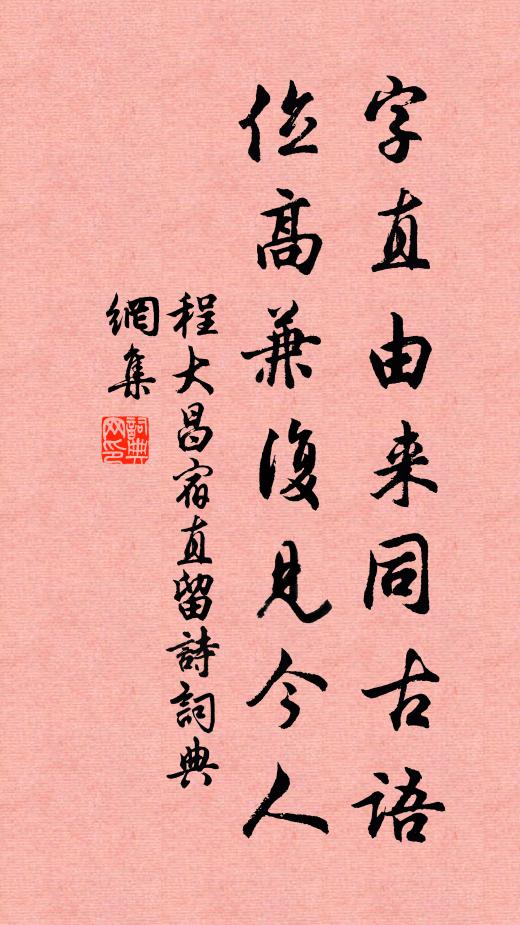 字直由来同古語
位高兼復見今人
程大昌宿直留詩詞典
網集
詞典
网印